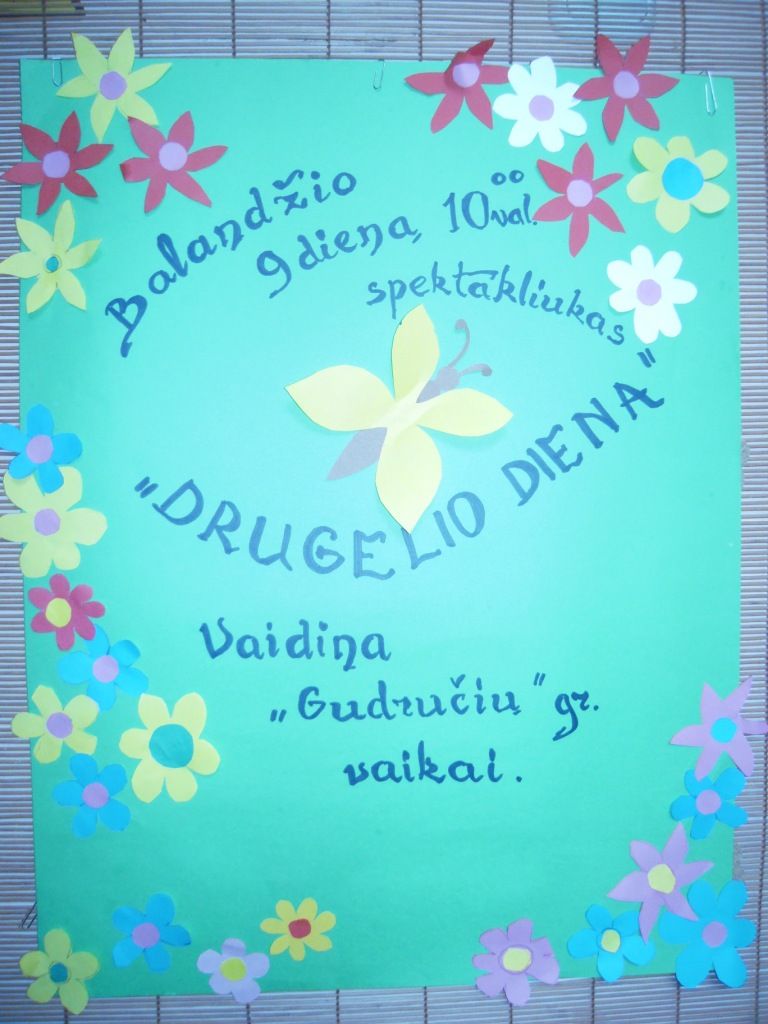 Balandžio
9 diena, 10⁰⁰ val.
spektakliukas
"DRUGELIO DIENA"
Vaidina
„Gudručių" gr.
vaikai.